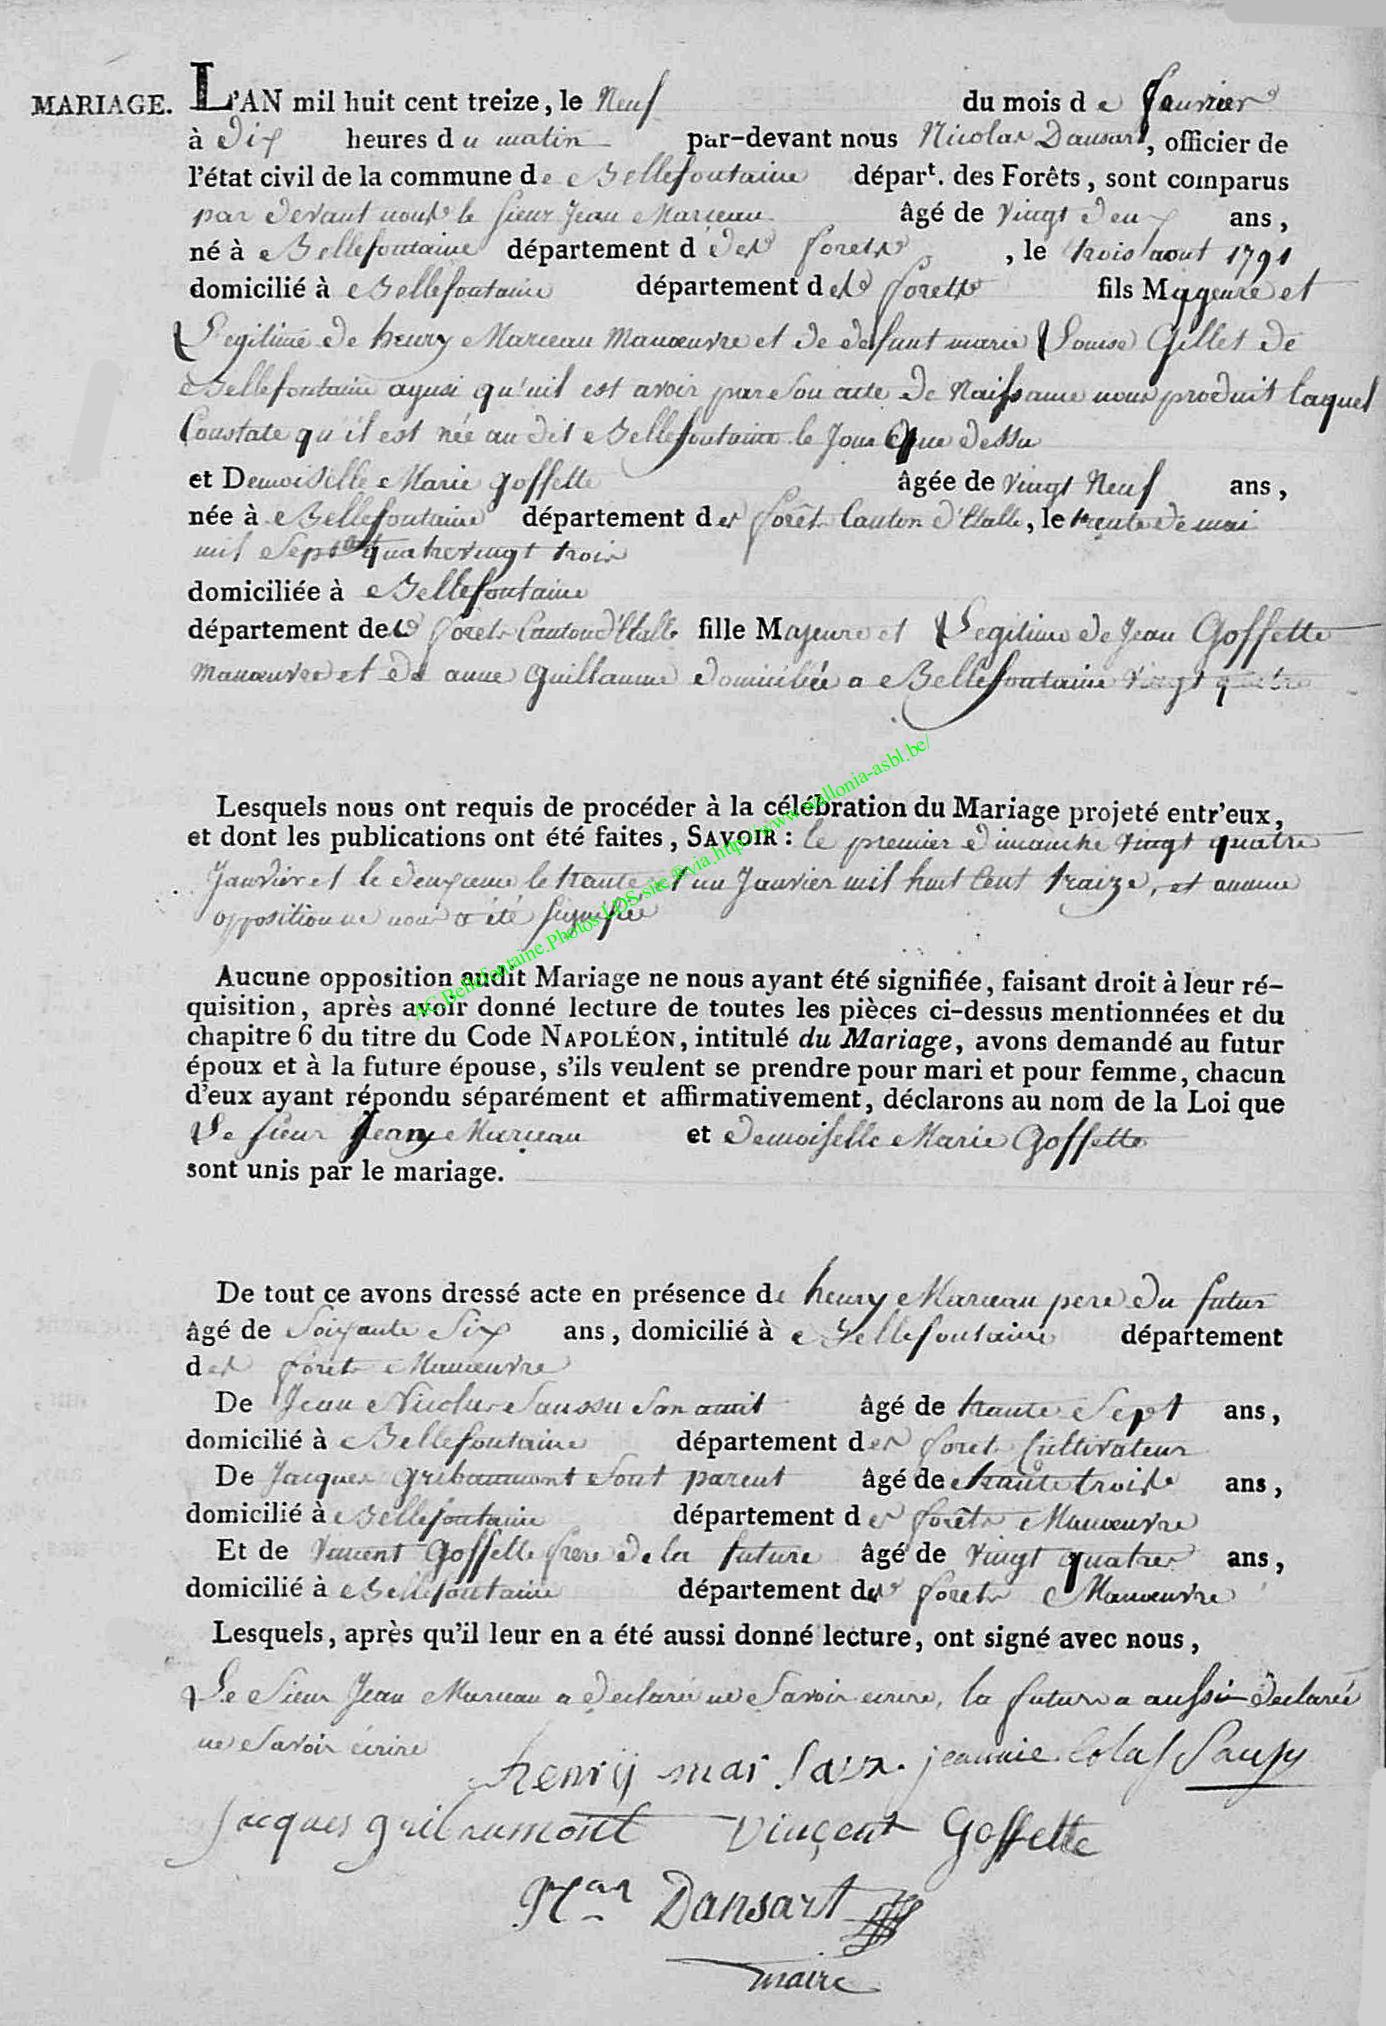 MARIAGE. L'AN mil huit cent treize, le Neuf du mois de feuvrier
à Dix heures du matin par-devant nous Nicolas Dansart, officier de
l'état civil de la commune de Bellefontaine départ. des Forêts, sont comparus
par devant nous le sieur Jean Marceau âgé de vingt deux ans,
né à Bellefontaine département d des forets, le trois aout 1791
domicilié à Bellefontaine département des forets fils Majeure et
Legitime de henry Marceau Manœuvre et de defunt marie Louise Gillet de
Bellefontaine aynsi qu'uil est avoir par son acte de Naissance nous produit laquel
Constate qu'il est née au dit Bellefontaine le Jour que dessu
et Demoiselle Marie goffette âgée de vingt Neuf ans,
née à Bellefontaine département des forêts Canton d'Etalle, le trente de mai
mil Sept quatrevingt trois
domiciliée à Bellefontaine
département des forêts Canton d'Etalle fille Majeure et Legitime de Jean Goffette
Manœuvre et de anne Guillaume domicilée a Bellefontaine vingt quatre
Lesquels nous ont requis de procéder à la célébration du Mariage projeté entr'eux,
et dont les publications ont été faites, SAVOIR : le premier dimanche vingt quatre
Janvier et le deuxieme le trente et un Janvier mil huit Cent traize, et aucune
opposition ne nous a été signifiée
Aucune opposition audit Mariage ne nous ayant été signifiée, faisant droit à leur ré-
quisition, après avoir donné lecture de toutes les pièces ci-dessus mentionnées et du
chapitre 6 du titre du Code NAPOLÉON, intitulé du Mariage, avons demandé au futur
époux et à la future épouse, s'ils veulent se prendre pour mari et pour femme, chacun
d'eux ayant répondu séparément et affirmativement, déclarons au nom de la Loi que
Le sieur Jean Marceau et Demoiselle Marie Goffette
sont unis par le mariage.
De tout ce avons dressé acte en présence de henry Marceau pere du futur
âgé de Soixante Six ans, domicilié à Bellefontaine département
des forêts Manœuvre
De Jean Nicolas Saussu son amit âgé de trante Sept ans,
domicilié à Bellefontaine département des foret Cultivateur
De Jacques Gribaumont sont parent âgé de trante trois ans,
domicilié à Bellefontaine département des forêts Manœuvre
Et de Vincent Goffette frere de la future âgé de vingt quatre ans,
domicilié à Bellefontaine département des forets Manœuvre
Lesquels, après qu'il leur en a été aussi donné lecture, ont signé avec nous,
Le Sieur Jean Marceau a declaré ne Savoir ecrire, la future a aussi declarée
ne Savoir écrire
henrÿ mar jeannie Colas Sausy
jacques gribaumont vinçent Goffette
Dansart
maire
AC.Bellefontaine.Photos LDS.site @via.http//www.wallonia-asbl.be/